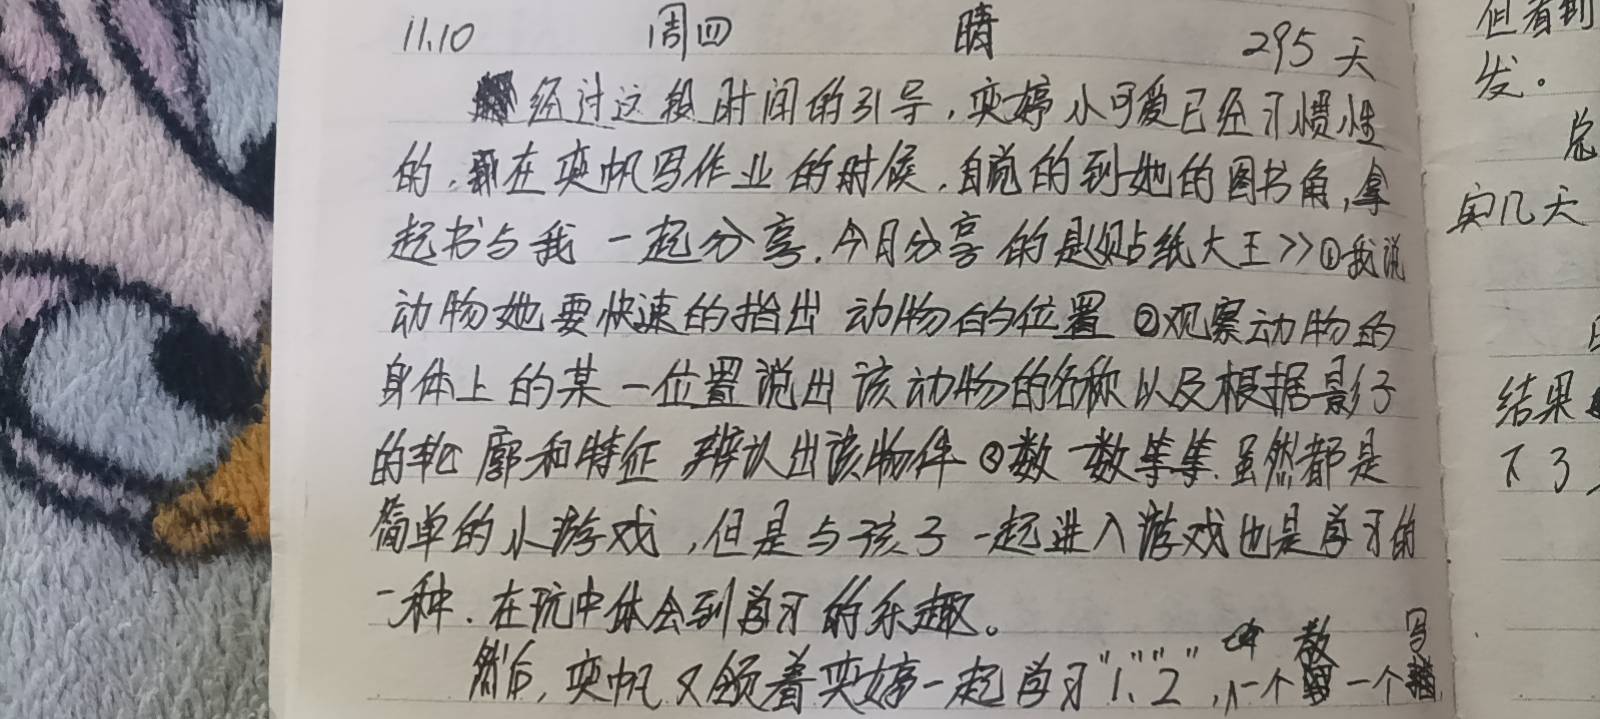 11.10 周四 晴 295天
经过这段时间的引导,奕婷小可爱已经习惯性
的,在奕帆写作业的时候,自觉的到她的图书角,拿
起书与我一起分享.今日分享的是《贴纸大王》①我说
动物她要快速的指出动物的位置②观察动物的
身体上的某一位置说出该动物的名称以及根据影子
的轮廓和特征辨认出该物件③数一数等等.虽然都是
简单的小游戏,但是与孩子一起进入游戏也是学习的
一种.在玩中体会到学习的乐趣。
然后,奕帆又领着奕婷一起学习"1"、"2",一个教一个写
但看到
发。
总
实几天
结果
下了